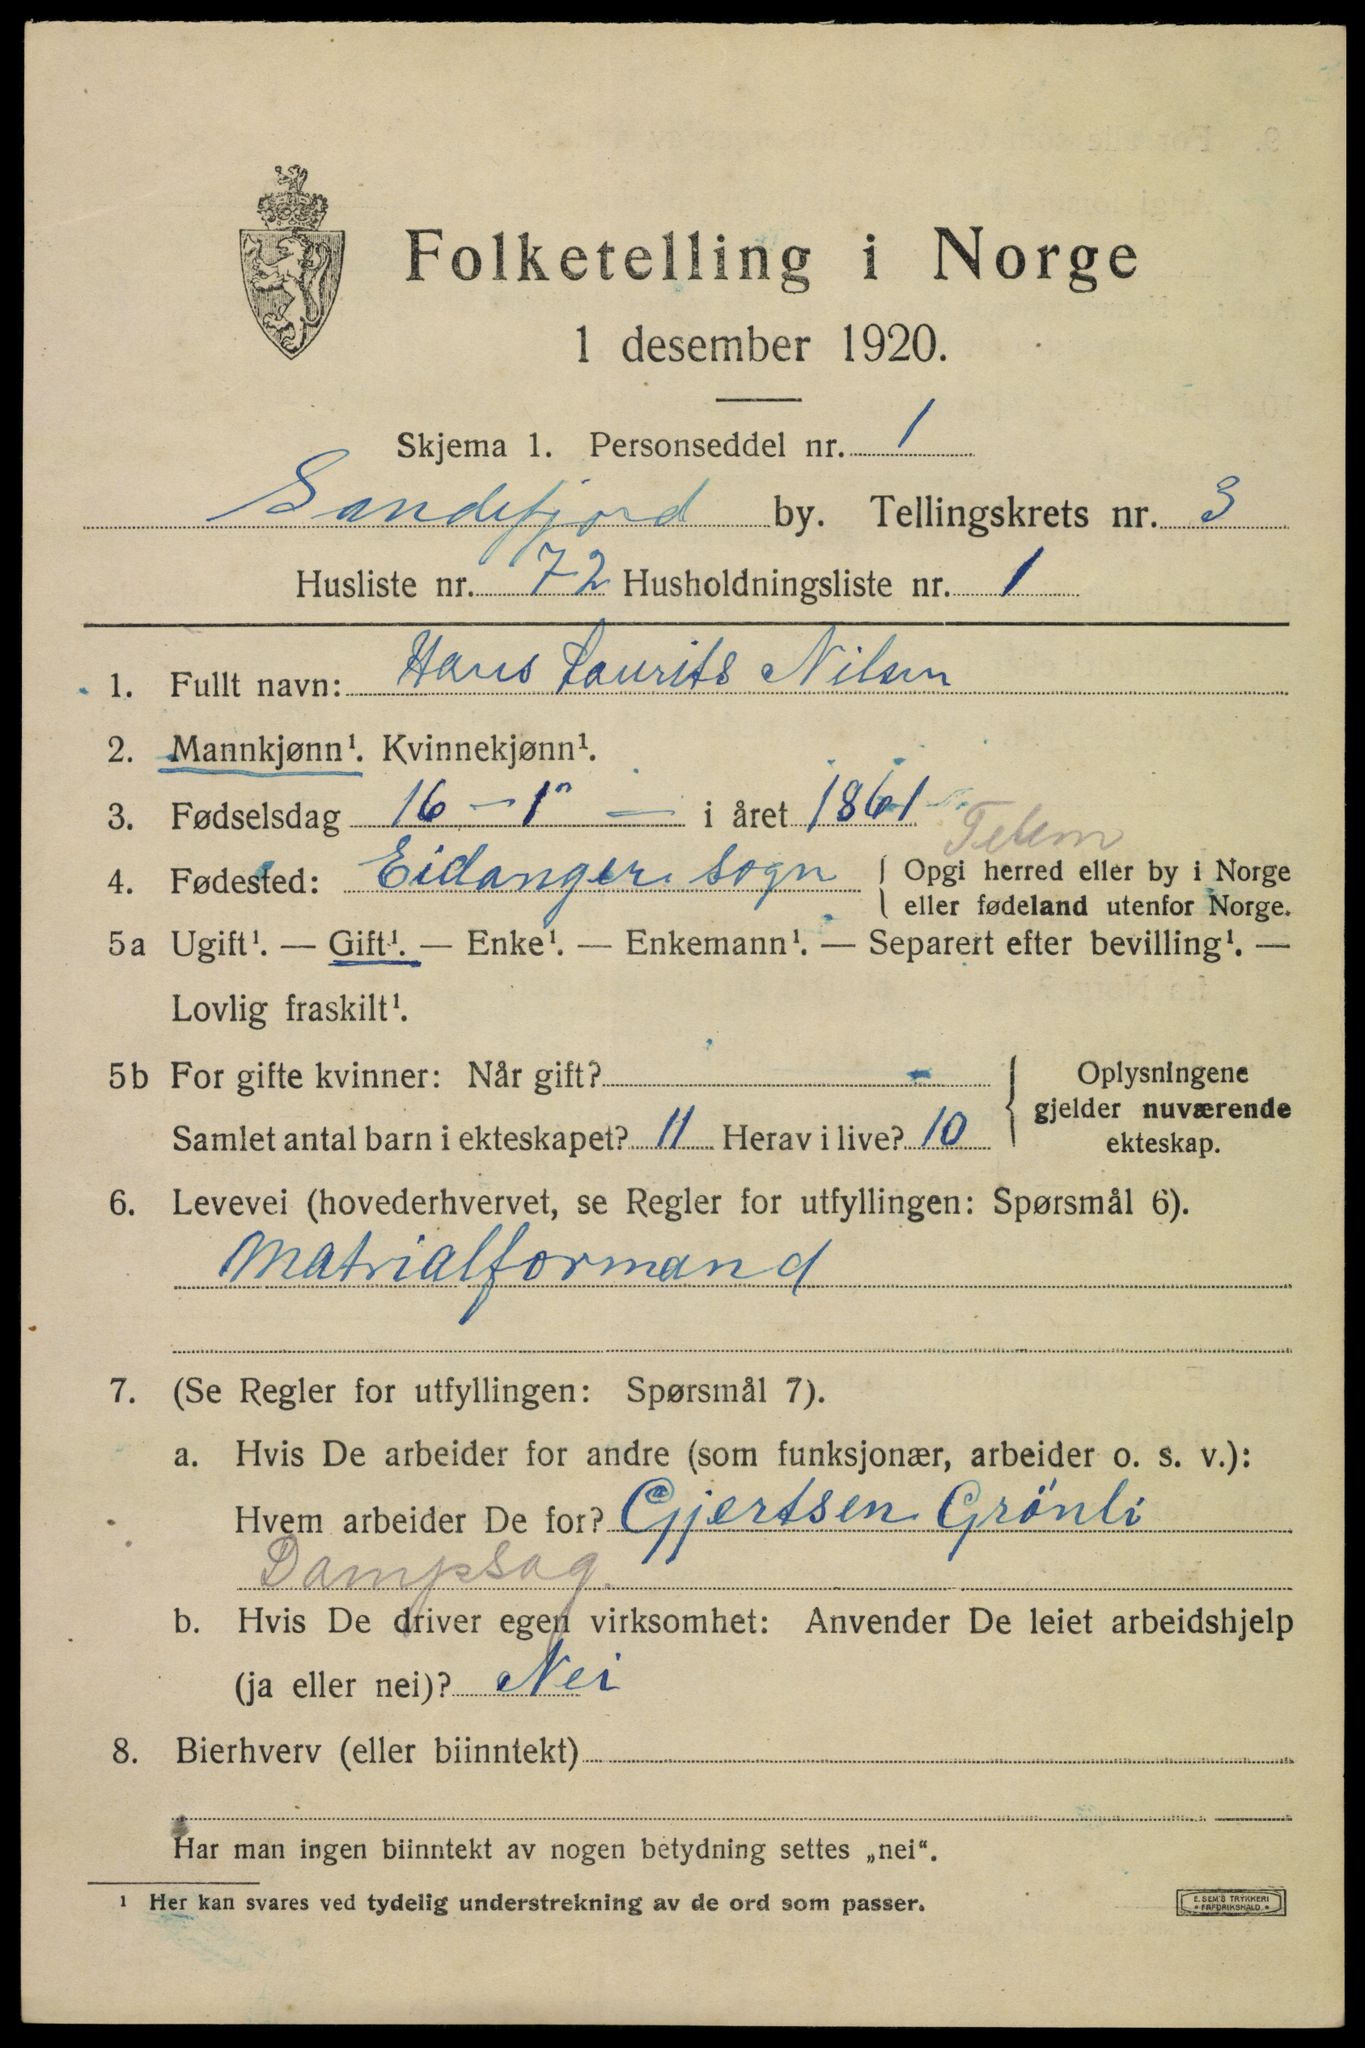 Folketelling i Norge
1 desember 1920.
Skjema 1. Personseddel nr. 1
Sandefjord by. Tellingskrets nr. 3
Husliste nr. 72 Husholdningsliste nr. 1
1. Fullt navn: Hans Laurits Nilsen
2. Mannkjønn¹. Kvinnekjønn¹.
3. Fødselsdag 16 – 1 – i året 1861
4. Fødested: Eidanger sogn
Opgi herred eller by i Norge
eller fødeland utenfor Norge.
5a Ugift¹. — Gift¹. — Enke¹. — Enkemann¹. — Separert efter bevilling¹. —
Lovlig fraskilt¹.
5b For gifte kvinner: Når gift? -
Samlet antal barn i ekteskapet? 11 Herav i live? 10
Oplysningene
gjelder nuværende
ekteskap.
6. Levevei (hovederhvervet, se Regler for utfyllingen: Spørsmål 6).
Matrialformand
7. (Se Regler for utfyllingen: Spørsmål 7).
a. Hvis De arbeider for andre (som funksjonær, arbeider o. s. v.):
Hvem arbeider De for? Gjertsen Grönli
Dampsag
b. Hvis De driver egen virksomhet: Anvender De leiet arbeidshjelp
(ja eller nei)? Nei
8. Bierhverv (eller biinntekt)
Har man ingen biinntekt av nogen betydning settes „nei“.
¹ Her kan svares ved tydelig understrekning av de ord som passer.
E. SEM'S TRYKKERI
FREDRIKSHALD